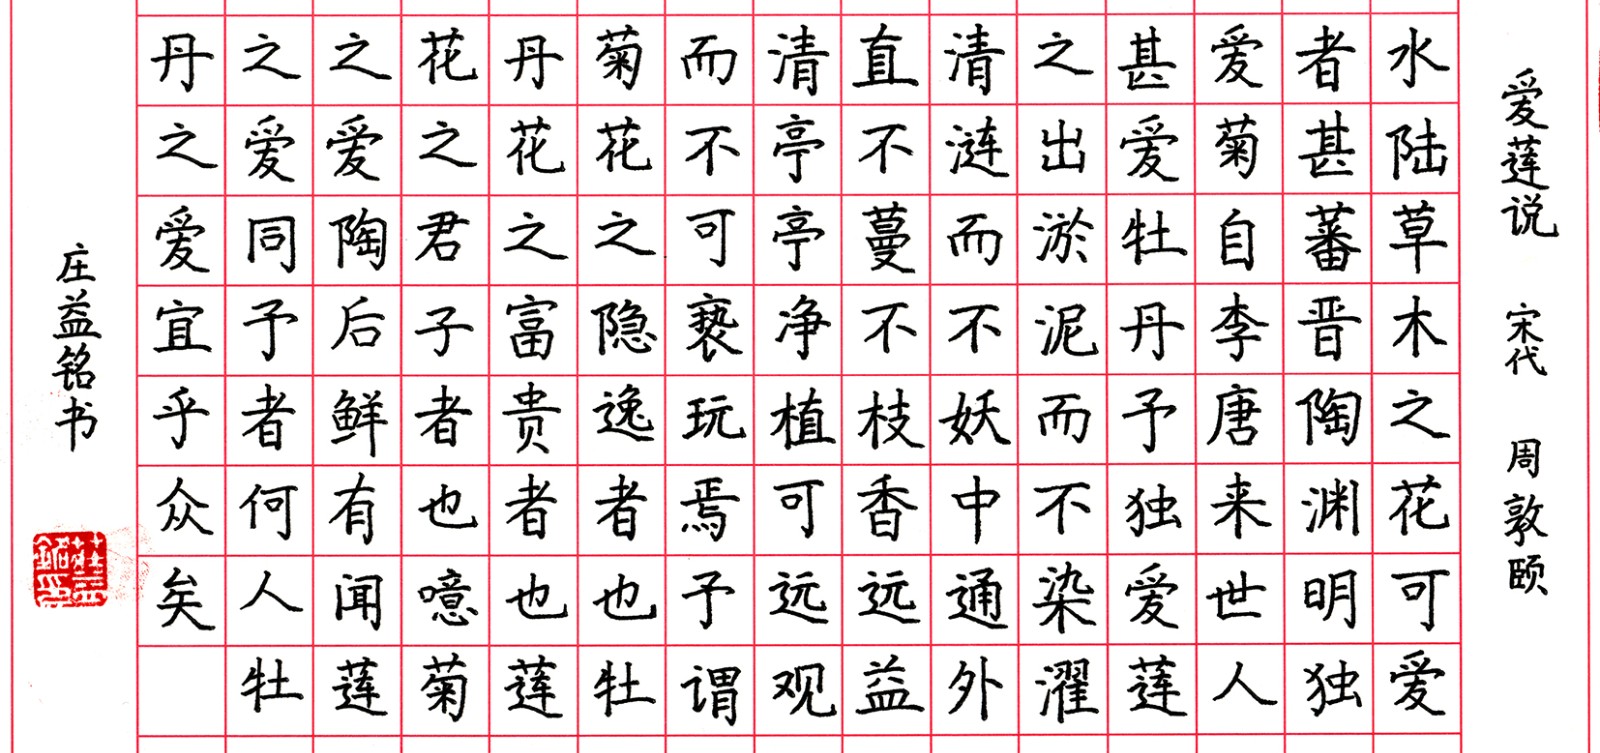 爱莲说 宋代 周敦颐
水陆草木之花可爱
者甚蕃晋陶渊明独
爱菊自李唐来世人
甚爱牡丹予独爱莲
之出淤泥而不染濯
清涟而不妖中通外
直不蔓不枝香远益
清亭亭净植可远观
而不可亵玩焉予谓
菊花之隐逸者也牡
丹花之富贵者也莲
花之君子者也噫菊
之爱陶后鲜有闻莲
之爱同予者何人牡
丹之爱宜乎众矣
庄益铭书
莊益銘印